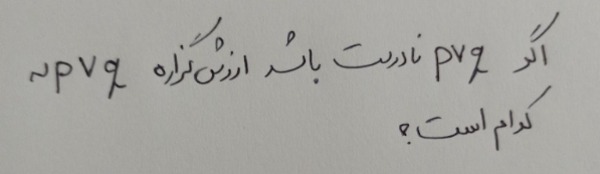 اگر p∨q نادرست باشد ارزش گزاره ~p∨q
کدام است؟